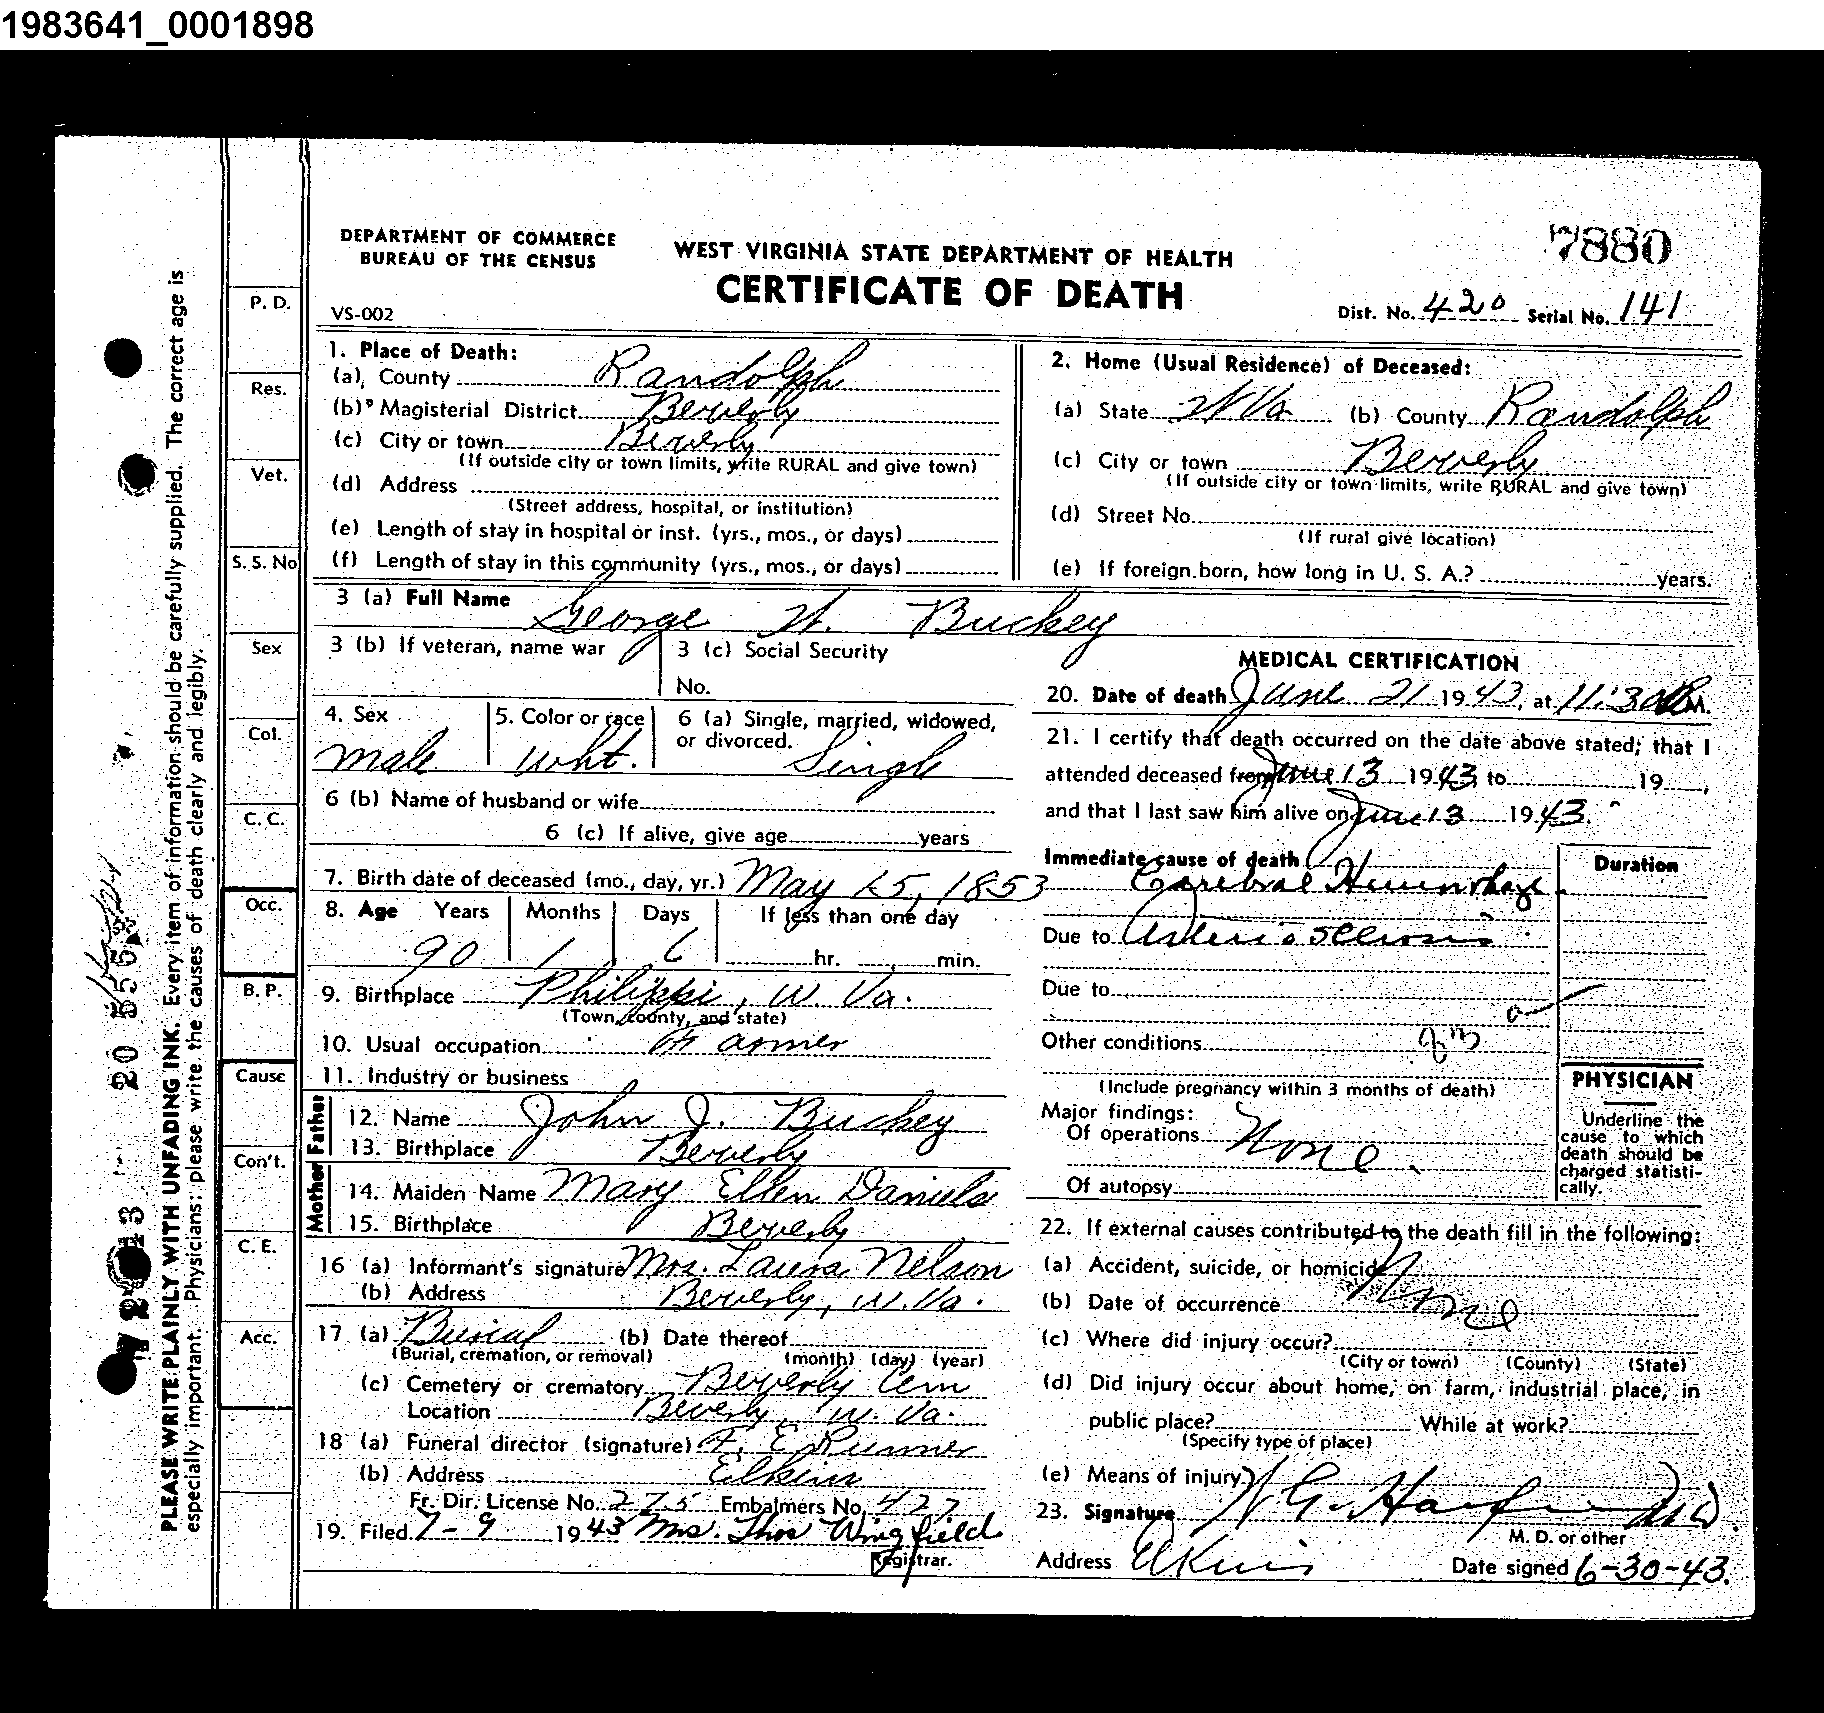 1983641_0001898
DEPARTMENT OF COMMERCE
BUREAU OF THE CENSUS
VS-002
WEST VIRGINIA STATE DEPARTMENT OF HEALTH
CERTIFICATE OF DEATH
7880
Dist. No. 420 Serial No. 141
1. Place of Death:
(a) County Randolph
(b) Magisterial District Beverly
(c) City or town Beverly
(If outside city or town limits, write RURAL and give town)
(d) Address
(Street address, hospital, or institution)
(e) Length of stay in hospital or inst. (yrs., mos., or days)
(f) Length of stay in this community (yrs., mos., or days)
2. Home (Usual Residence) of Deceased:
(a) State W Va (b) County Randolph
(c) City or town Beverly
(If outside city or town limits, write RURAL and give town)
(d) Street No.
(If rural give location)
(e) If foreign born, how long in U. S. A.? years.
3 (a) Full Name George W. Buckey
3 (b) If veteran, name war
3 (c) Social Security
No.
4. Sex male
5. Color or race wht.
6 (a) Single, married, widowed,
or divorced. Single
6 (b) Name of husband or wife
6 (c) If alive, give age years
7. Birth date of deceased (mo., day, yr.) May 15, 1853
8. Age Years Months Days If less than one day
90 1 6 hr. min.
9. Birthplace Philippi, W. Va.
(Town, county, and state)
10. Usual occupation Farmer
11. Industry or business
Father
12. Name John J. Buckey
13. Birthplace Beverly
Mother
14. Maiden Name Mary Ellen Daniels
15. Birthplace Beverly
16 (a) Informant's signature Mrs. Laura Nelson
(b) Address Beverly, W. Va.
17 (a) Burial (b) Date thereof
(Burial, cremation, or removal) (month) (day) (year)
(c) Cemetery or crematory Beverly Cem
Location Beverly, W. Va.
18 (a) Funeral director (signature) F. E. Runner
(b) Address Elkins
Fr. Dir. License No. 275 Embalmers No. 427
19. Filed 7-9 1943 Mrs. Thos Wingfield
Registrar.
MEDICAL CERTIFICATION
20. Date of death June 21 1943, at 11:30 M.
21. I certify that death occurred on the date above stated; that I
attended deceased from June 13 1943, to 19
and that I last saw him alive on June 13 1943.
Immediate cause of death
Cerebral Hemorrhage
Duration
Due to Arterio Sclerosis
Due to
Other conditions
(Include pregnancy within 3 months of death)
Major findings:
Of operations None
Of autopsy
PHYSICIAN
Underline the
cause to which
death should be
charged statisti-
cally.
22. If external causes contributed to the death fill in the following:
(a) Accident, suicide, or homicide
(b) Date of occurrence None
(c) Where did injury occur?
(City or town) (County) (State)
(d) Did injury occur about home, on farm, industrial place, in
public place? While at work?
(Specify type of place)
(e) Means of injury
23. Signature M.D.
M. D. or other
Address Elkins Date signed 6-30-43.
P. D.
Res.
Vet.
S. S. No
Sex
Col.
C. C.
Occ.
B. P.
Cause
Con't.
C. E.
Acc.
PLEASE WRITE PLAINLY WITH UNFADING INK. Every item of information should be carefully supplied. The correct age is
especially important. Physicians: please write the causes of death clearly and legibly.